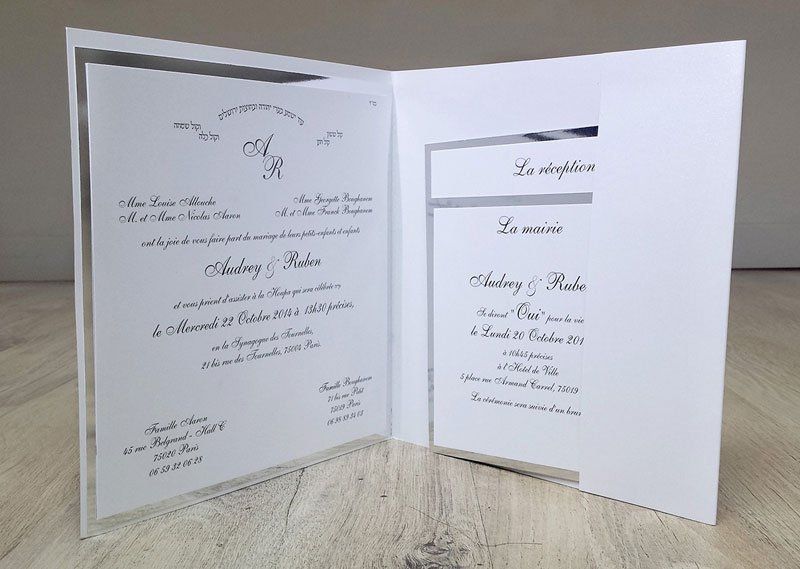 בס"ד
עוד ישמע בערי יהודה ובחוצות ירושלים
קול ששון
וקול שמחה
קול חתן
וקול כלה
A
R
Mme Louise Allouche
M. et Mme Nicolas Aaron
Mme Georgette Boughanem
M. et Mme Franck Boughanem
ont la joie de vous faire part du mariage de leurs petits-enfants et enfants
Audrey & Ruben
et vous prient d'assister à la Houpa qui sera célébrée
le Mercredi 22 Octobre 2014 à 13h30 précises,
en la Synagogue des Tournelles,
21 bis rue des Tournelles, 75004 Paris.
Famille Aaron
45 rue Belgrand - Hall C
75020 Paris
06 59 32 06 28
Famille Boughanem
71 bis rue Petit
75019 Paris
06 98 89 34 03
La réception
La mairie
Audrey & Rube
Se diront "Oui" pour la vie
le Lundi 20 Octobre 201
à 10h45 précises
à l'Hôtel de Ville
5 place rue Armand Carrel, 75019
La cérémonie sera suivie d'un brun